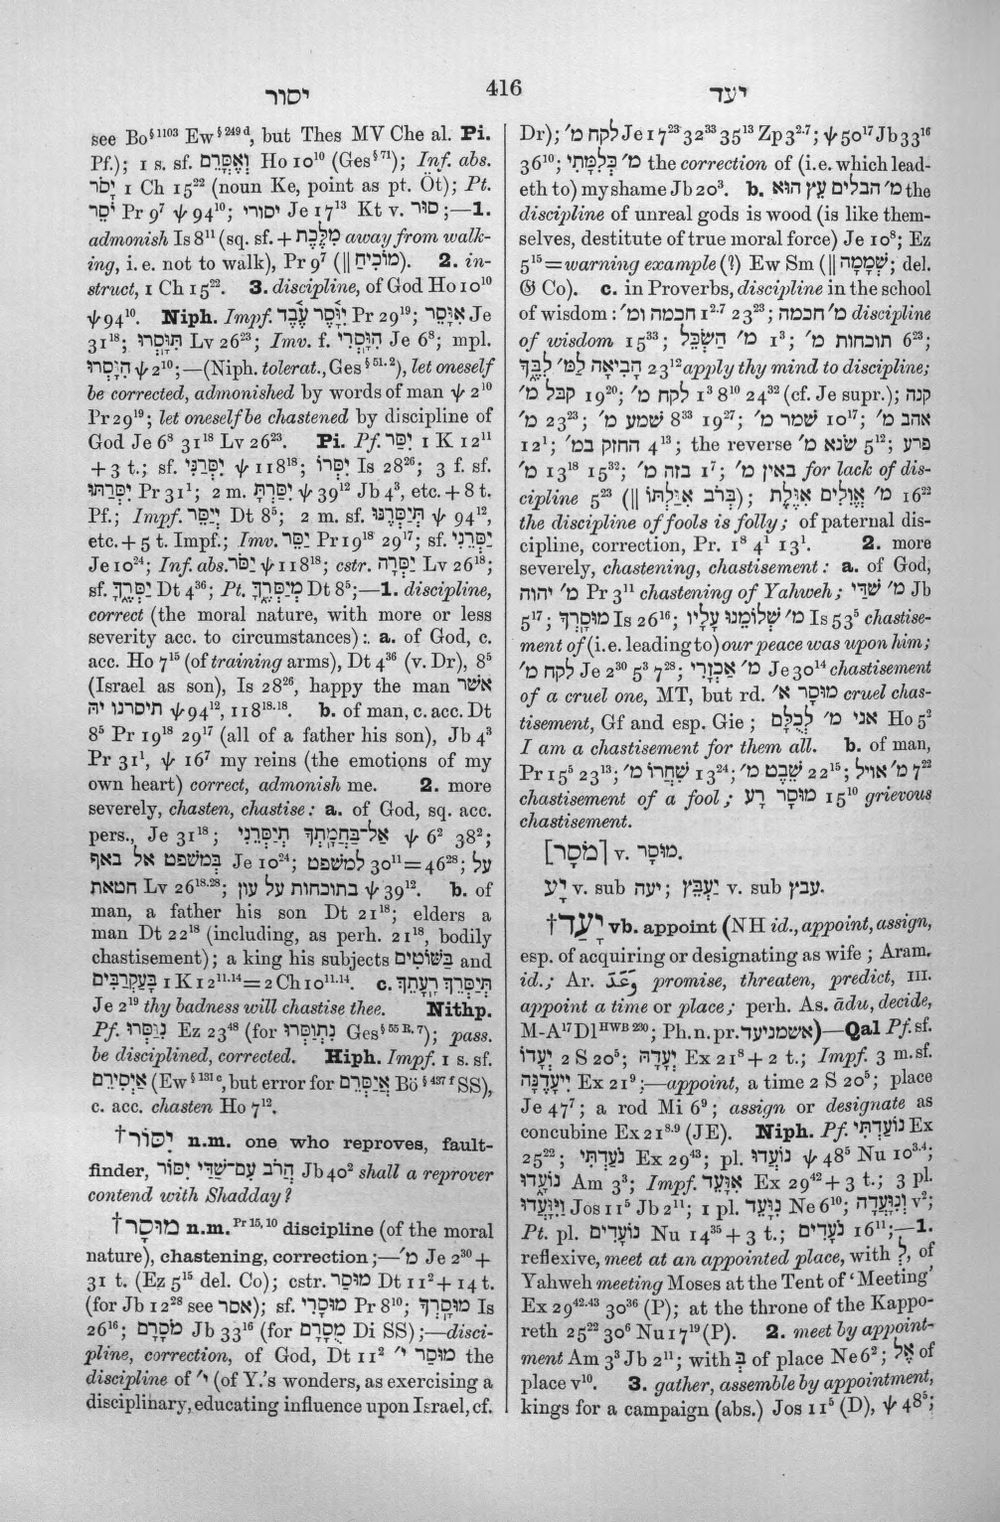 יסור
416
יעד
see Bo§1103 Ew§249d, but Thes MV Che al. Pi.
Pf.); 1 s. sf. וְאֶסֳּרֵם Ho 10¹⁰ (Ges§71); Inf. abs.
יָסֹר 1 Ch 15²² (noun Ke, point as pt. Öt); Pt.
יֹסֵר Pr 9⁷ ψ 94¹⁰; יסורי Je 17¹³ Kt v. סוּר;—1.
admonish Is 8¹¹ (sq. sf. + מִלֶּכֶת away from walk-
ing, i.e. not to walk), Pr 9⁷ (|| מוֹכִיחַ). 2. in-
struct, 1 Ch 15²². 3. discipline, of God Ho 10¹⁰
ψ 94¹⁰. Niph. Impf. יִוָּסֶר עָבֶד Pr 29¹⁹; אִוָּסֵר Je
31¹⁸; תִּוָּסְרוּ Lv 26²³; Imv. f. הִוָּסְרִי Je 6⁸; mpl.
הִוָּסְרוּ ψ 2¹⁰;—(Niph. tolerat., Ges§51.2), let oneself
be corrected, admonished by words of man ψ 2¹⁰
Pr 29¹⁹; let oneself be chastened by discipline of
God Je 6⁸ 31¹⁸ Lv 26²³. Pi. Pf. יִסַּר 1 K 12¹¹
+ 3 t.; sf. יִסְּרַנִּי ψ 118¹⁸; יִסְּרוֹ Is 28²⁶; 3 f. sf.
יִסְּרַתּוּ Pr 31¹; 2 m. יִסַּרְתָּ ψ 39¹² Jb 4³, etc. + 8 t.
Pf.; Impf. יְיַסֵּר Dt 8⁵; 2 m. sf. תְּיַסְּרֶנּוּ ψ 94¹²,
etc. + 5 t. Impf.; Imv. יַסֵּר Pr 19¹⁸ 29¹⁷; sf. יַסְּרֵנִי
Je 10²⁴; Inf. abs. יַסֹּר ψ 118¹⁸; cstr. יַסְּרָה Lv 26¹⁸;
sf. יַסְּרֶךָּ Dt 4³⁶; Pt. מְיַסְּרֶךָּ Dt 8⁵;—1. discipline,
correct (the moral nature, with more or less
severity acc. to circumstances): a. of God, c.
acc. Ho 7¹⁵ (of training arms), Dt 4³⁶ (v. Dr), 8⁵
(Israel as son), Is 28²⁶, happy the man אשׁר
תיסרנו יה ψ 94¹², 118¹⁸·¹⁸. b. of man, c. acc. Dt
8⁵ Pr 19¹⁸ 29¹⁷ (all of a father his son), Jb 4³
Pr 31¹, ψ 16⁷ my reins (the emotions of my
own heart) correct, admonish me. 2. more
severely, chasten, chastise: a. of God, sq. acc.
pers., Je 31¹⁸; אַל־בַּחֲמָתְךָ תְיַסְּרֵנִי ψ 6² 38²;
במשפט אל באף Je 10²⁴; למשפט 30¹¹ = 46²⁸; על
חטאת Lv 26¹⁸·²⁸; בתוכחות על עון ψ 39¹². b. of
man, a father his son Dt 21¹⁸; elders a
man Dt 22¹⁸ (including, as perh. 21¹⁸, bodily
chastisement); a king his subjects בַּשּׁוֹטִים and
בָּעַקְרַבִּים 1 K 12¹¹·¹⁴ = 2 Ch 10¹¹·¹⁴. c. תְּיַסְּרֵךְ רָעָתֵךְ
Je 2¹⁹ thy badness will chastise thee. Nithp.
Pf. נִוַּסְּרוּ Ez 23⁴⁸ (for נִתְוַסְּרוּ Ges§55 R. 7); pass.
be disciplined, corrected. Hiph. Impf. 1 s. sf.
אַיְסִירֵם (Ew§131c, but error for אֲיַסְּרֵם Bö§437f SS),
c. acc. chasten Ho 7¹².
†יִסּוֹר n.m. one who reproves, fault-
finder, הֲרֹב עִם־שַׁדַּי יִסּוֹר Jb 40² shall a reprover
contend with Shadday?
†מוּסָר n.m. Pr 15, 10 discipline (of the moral
nature), chastening, correction;—מ׳ Je 2³⁰ +
31 t. (Ez 5¹⁵ del. Co); cstr. מוּסַר Dt 11² + 14 t.
(for Jb 12²⁸ see אסר); sf. מוּסָרִי Pr 8¹⁰; מוּסָרְךָ Is
26¹⁶; מֹסָרָם Jb 33¹⁶ (for מֻסָרָם Di SS);—disci-
pline, correction, of God, Dt 11² מוּסַר י׳ the
discipline of י׳ (of Y.'s wonders, as exercising a
disciplinary, educating influence upon Israel, cf.
Dr); לקח מ׳ Je 17²³ 32³³ 35¹³ Zp 3²·⁷; ψ 50¹⁷ Jb 33¹⁶
36¹⁰; מ׳ כְּלִמָּתִי the correction of (i.e. which lead-
eth to) my shame Jb 20³. b. מ׳ הבלים עֵץ הוּא the
discipline of unreal gods is wood (is like them-
selves, destitute of true moral force) Je 10⁸; Ez
5¹⁵ = warning example (?) Ew Sm (|| שְׁמָמָה; del.
𝔊 Co). c. in Proverbs, discipline in the school
of wisdom: חכמה ומ׳ 1²·⁷ 23²³; מ׳ חכמה discipline
of wisdom 15³³; מ׳ הַשְׂכֵּל 1³; תוכחות מ׳ 6²³;
הָבִיאָה לַמּ׳ לִבֶּךָ 23¹² apply thy mind to discipline;
קבל מ׳ 19²⁰; לקח מ׳ 1³ 8¹⁰ 24³² (cf. Je supr.); קנה
מ׳ 23²³; שמע מ׳ 8³³ 19²⁷; שמר מ׳ 10¹⁷; אהב מ׳
12¹; החזק במ׳ 4¹³; the reverse שׂנא מ׳ 5¹²; פרע
מ׳ 13¹⁸ 15³²; בזה מ׳ 1⁷; באין מ׳ for lack of dis-
cipline 5²³ (|| בְּרֹב אִוַּלְתּוֹ); מ׳ אֱוִלִים אִוֶּלֶת 16²²
the discipline of fools is folly; of paternal dis-
cipline, correction, Pr. 1⁸ 4¹ 13¹. 2. more
severely, chastening, chastisement: a. of God,
מ׳ יהוה Pr 3¹¹ chastening of Yahweh; מ׳ שַׁדַּי Jb
5¹⁷; מוּסָרְךָ Is 26¹⁶; מ׳ שְׁלוֹמֵנוּ עָלָיו Is 53⁵ chastise-
ment of (i.e. leading to) our peace was upon him;
לקח מ׳ Je 2³⁰ 5³ 7²⁸; מ׳ אַכְזָרִי Je 30¹⁴ chastisement
of a cruel one, MT, but rd. מוּסָר א׳ cruel chas-
tisement, Gf and esp. Gie; אני מ׳ לְכֻלָּם Ho 5²
I am a chastisement for them all. b. of man,
Pr 15⁵ 23¹³; שִׁחֲרוֹ מ׳ 13²⁴; שֵׁבֶט מ׳ 22¹⁵; מ׳ אויל 7²²
chastisement of a fool; מוּסָר רָע 15¹⁰ grievous
chastisement.
[מֹסָר] v. מוּסָר.
יָע v. sub יעה; יַעְבֵּץ v. sub עבץ.
†יָעַד vb. appoint (NH id., appoint, assign,
esp. of acquiring or designating as wife; Aram.
id.; Ar. وَعَدَ promise, threaten, predict, III.
appoint a time or place; perh. As. âdu, decide,
M-A¹⁷ Dl HWB 230; Ph. n. pr. אשמניעד)—Qal Pf. sf.
יְעָדוֹ 2 S 20⁵; יְעָדָהּ Ex 21⁸ + 2 t.; Impf. 3 m. sf.
יִיעָדֶנָּה Ex 21⁹;—appoint, a time 2 S 20⁵; place
Je 47⁷; a rod Mi 6⁹; assign or designate as
concubine Ex 21⁸·⁹ (JE). Niph. Pf. נוֹעַדְתִּי Ex
25²²; נֹעַדְתִּי Ex 29⁴³; pl. נוֹעֲדוּ ψ 48⁵ Nu 10³·⁴;
נוֹעָדוּ Am 3³; Impf. אִוָּעֵד Ex 29⁴² + 3 t.; 3 pl.
וַיִּוָּעֲדוּ Jos 11⁵ Jb 2¹¹; 1 pl. נִוָּעֵד Ne 6¹⁰; וְנִוָּעֲדָה v²;
Pt. pl. נוֹעָדִים Nu 14³⁵ + 3 t.; נֹעָדִים 16¹¹;—1.
reflexive, meet at an appointed place, with לְ, of
Yahweh meeting Moses at the Tent of 'Meeting'
Ex 29⁴²·⁴³ 30³⁶ (P); at the throne of the Kappo-
reth 25²² 30⁶ Nu 17¹⁹ (P). 2. meet by appoint-
ment Am 3³ Jb 2¹¹; with בְּ of place Ne 6²; אֶל of
place v¹⁰. 3. gather, assemble by appointment,
kings for a campaign (abs.) Jos 11⁵ (D), ψ 48⁵;